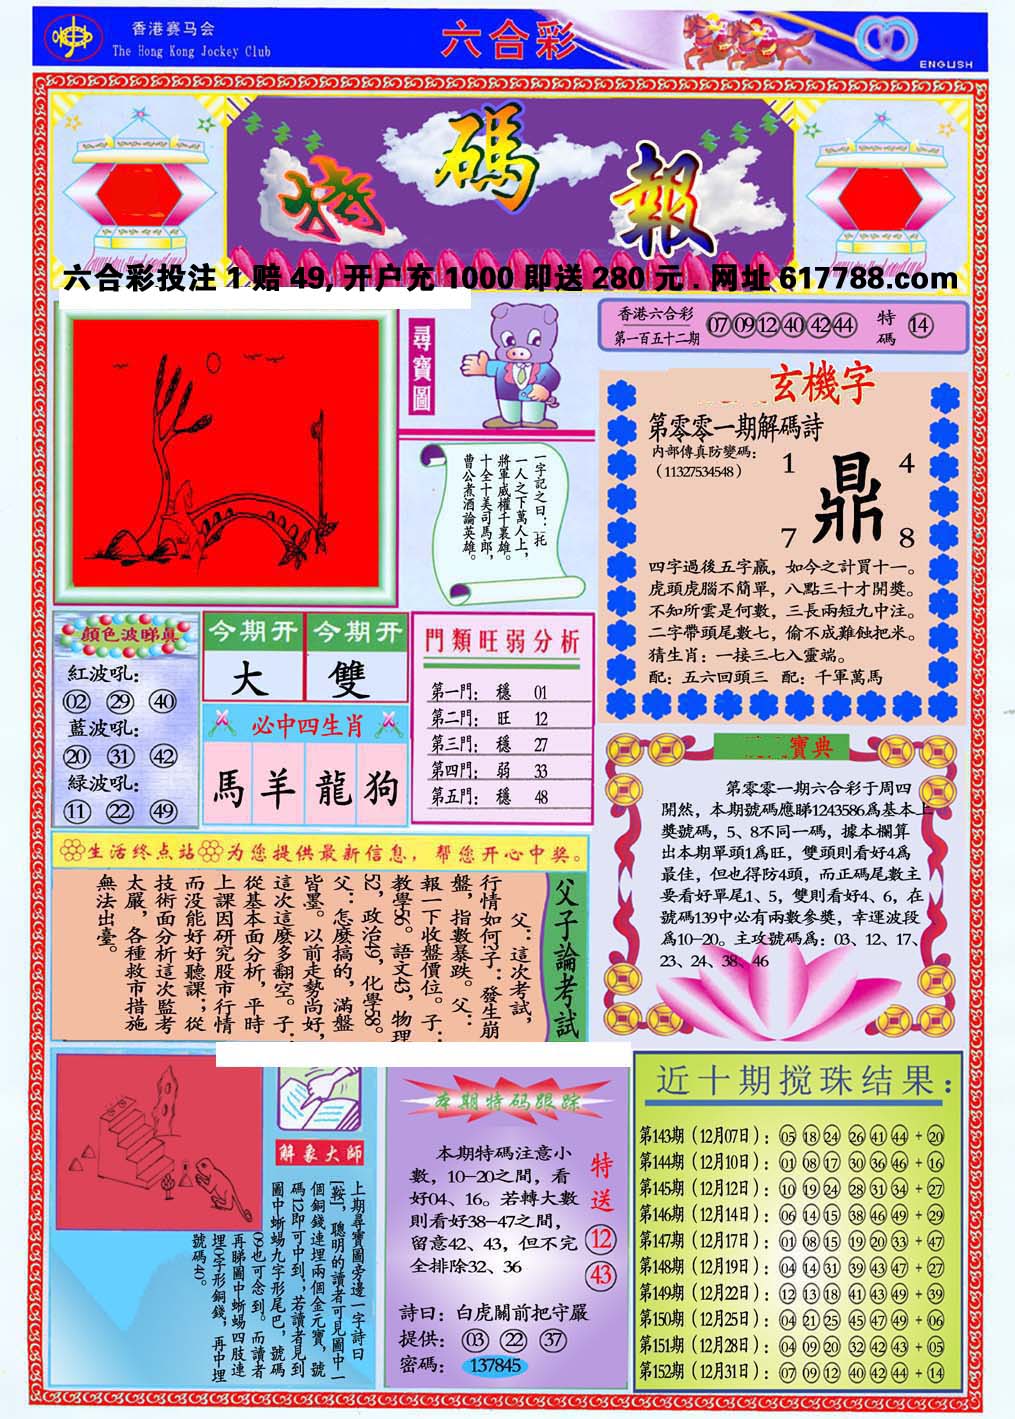 香港赛马会
The Hong Kong Jockey Club
六合彩
ENGLISH
特碼報
六合彩投注1赔49,开户充1000即送280元.网址617788.com
尋寶圖
香港六合彩
第一百五十二期
07 09 12 40 42 44
特碼
14
一字記之曰：[托
一人之下萬人上，
將軍威權千裏雄。
十全十美司馬郎，
曹公煮酒論英雄。
玄機字
第零零一期解碼詩
内部傳真防變碼：
（11327534548）
1 4
鼎
7 8
四字過後五字贏，如今之計買十一。
虎頭虎腦不簡單，八點三十才開獎。
不知所雲是何數，三長兩短九中注。
二字帶頭尾數七，偷不成難蝕把米。
猜生肖：一接三七入靈端。
配：五六回頭三 配：千軍萬馬
顏色波睇真
紅波吼：
02 29 40
藍波吼：
20 31 42
緑波吼：
11 22 49
今期开 今期开
大 雙
必中四生肖
馬 羊 龍 狗
門類旺弱分析
第一門： 穩 01
第二門： 旺 12
第三門： 穩 27
第四門： 弱 33
第五門： 穩 48
寶典
第零零一期六合彩于周四
開然，本期號碼應睇1243586爲基本上
獎號碼，5、8不同一碼，據本欄算
出本期單頭1爲旺，雙頭則看好4爲
最佳，但也得防4頭，而正碼尾數主
要看好單尾1、5，雙則看好4、6，在
號碼139中必有兩數參獎，幸運波段
爲10-20。主攻號碼爲：03、12、17、
23、24、38、46
生活终点站 为您提供最新信息，帮您开心中奖。
父子論考試
父：這次考試，
行情如何？子：發生崩
盤，指數暴跌。父：
報一下收盤價位。子：
教學56。語文43，物理
52，政治49，化學58。
父：怎麽搞的，滿盤
皆墨。以前走勢尚好，
這次這麽多翻空。子：
從基本面分析，平時
上課因研究股市行情
而没能好好聽課；從
技術面分析這次監考
太嚴，各種救市措施
無法出臺。
解象大師
上期尋寶圖旁邊一字詩曰
[鞍]，聰明的讀者可見圖中一
個銅錢連埋兩個金元寶，號
碼12即可中到；若讀者見到
圖中蜥蜴九字形尾巴，號碼
09也可念到。而讀者
再睇圖中蜥蜴四肢連
埋0字形銅錢，再中埋
號碼40。
本期特码跟踪
本期特碼注意小
數，10-20之間，看
好04、16。若轉大數
則看好38-47之間，
留意42、43，但不完
全排除32、36
特送
12
43
詩曰：白虎關前把守嚴
提供： 03 22 37
密碼： 137845
近十期搅珠结果：
第143期（12月07日）：05 18 24 26 41 44 + 20
第144期（12月10日）：01 08 17 30 36 46 + 16
第145期（12月12日）：10 19 24 28 31 34 + 27
第146期（12月14日）：06 14 15 38 46 49 + 29
第147期（12月17日）：01 08 15 19 20 33 + 47
第148期（12月19日）：04 14 31 39 43 47 + 27
第149期（12月22日）：12 13 18 41 43 49 + 39
第150期（12月25日）：04 21 25 45 47 49 + 06
第151期（12月28日）：04 09 20 32 42 43 + 05
第152期（12月31日）：07 09 12 40 42 44 + 14